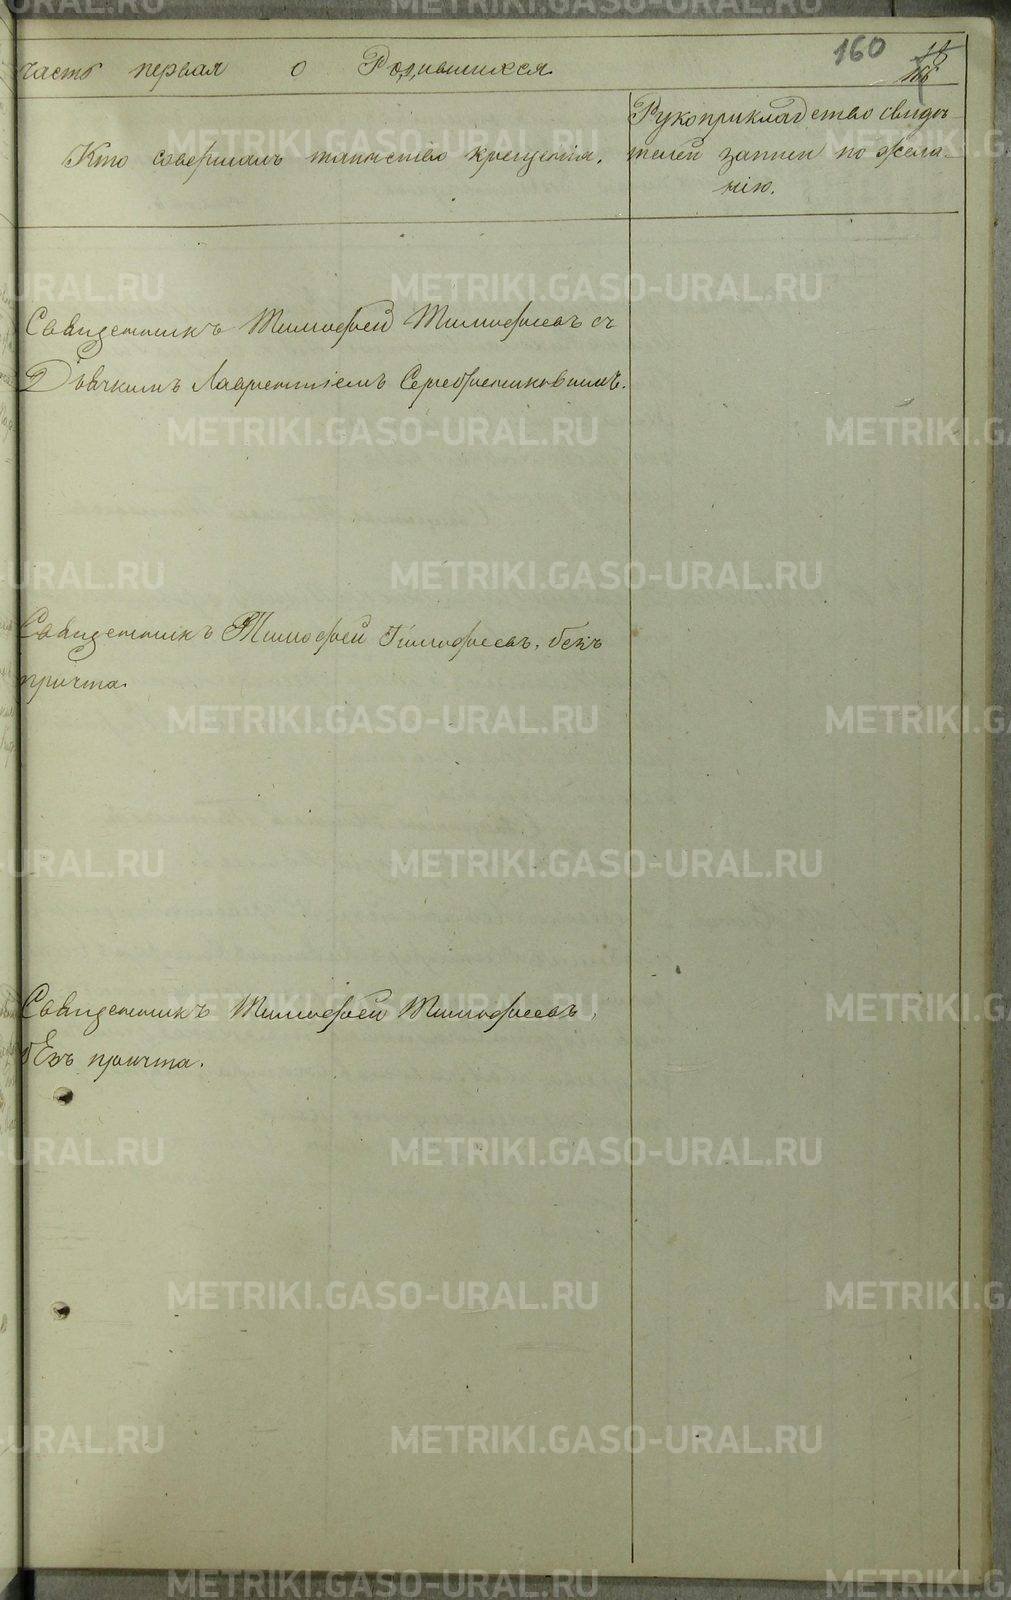 160
часть первая о Родившихся
Кто совершалъ таинство крещенія.
Рукоприкладство свидѣ-
телей записи по жела-
нію.
Священникъ Тимофей Тимофеевъ съ
Дьячкомъ Лаврентіемъ Серебренниковымъ.
Священникъ Тимофей Тимофеевъ, безъ
причта.
Священникъ Тимофей Тимофеевъ,
безъ причта.
METRIKI.GASO-URAL.RU